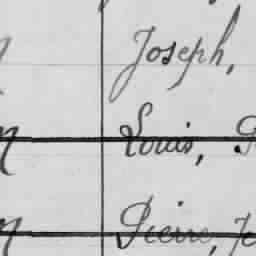 Joseph,
Louis,
Pierre,